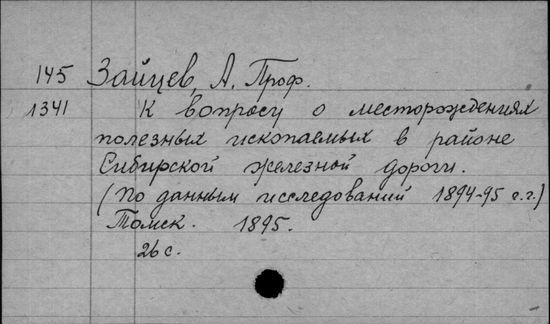 145 Зайцев, А. Проф.
1341 К вопросу о месторождениях
полезных ископаемых в районе
Сибирской железной дороги.
(По данным исследований 1894-95 г.г.)
Томск. 1895.
26 с.